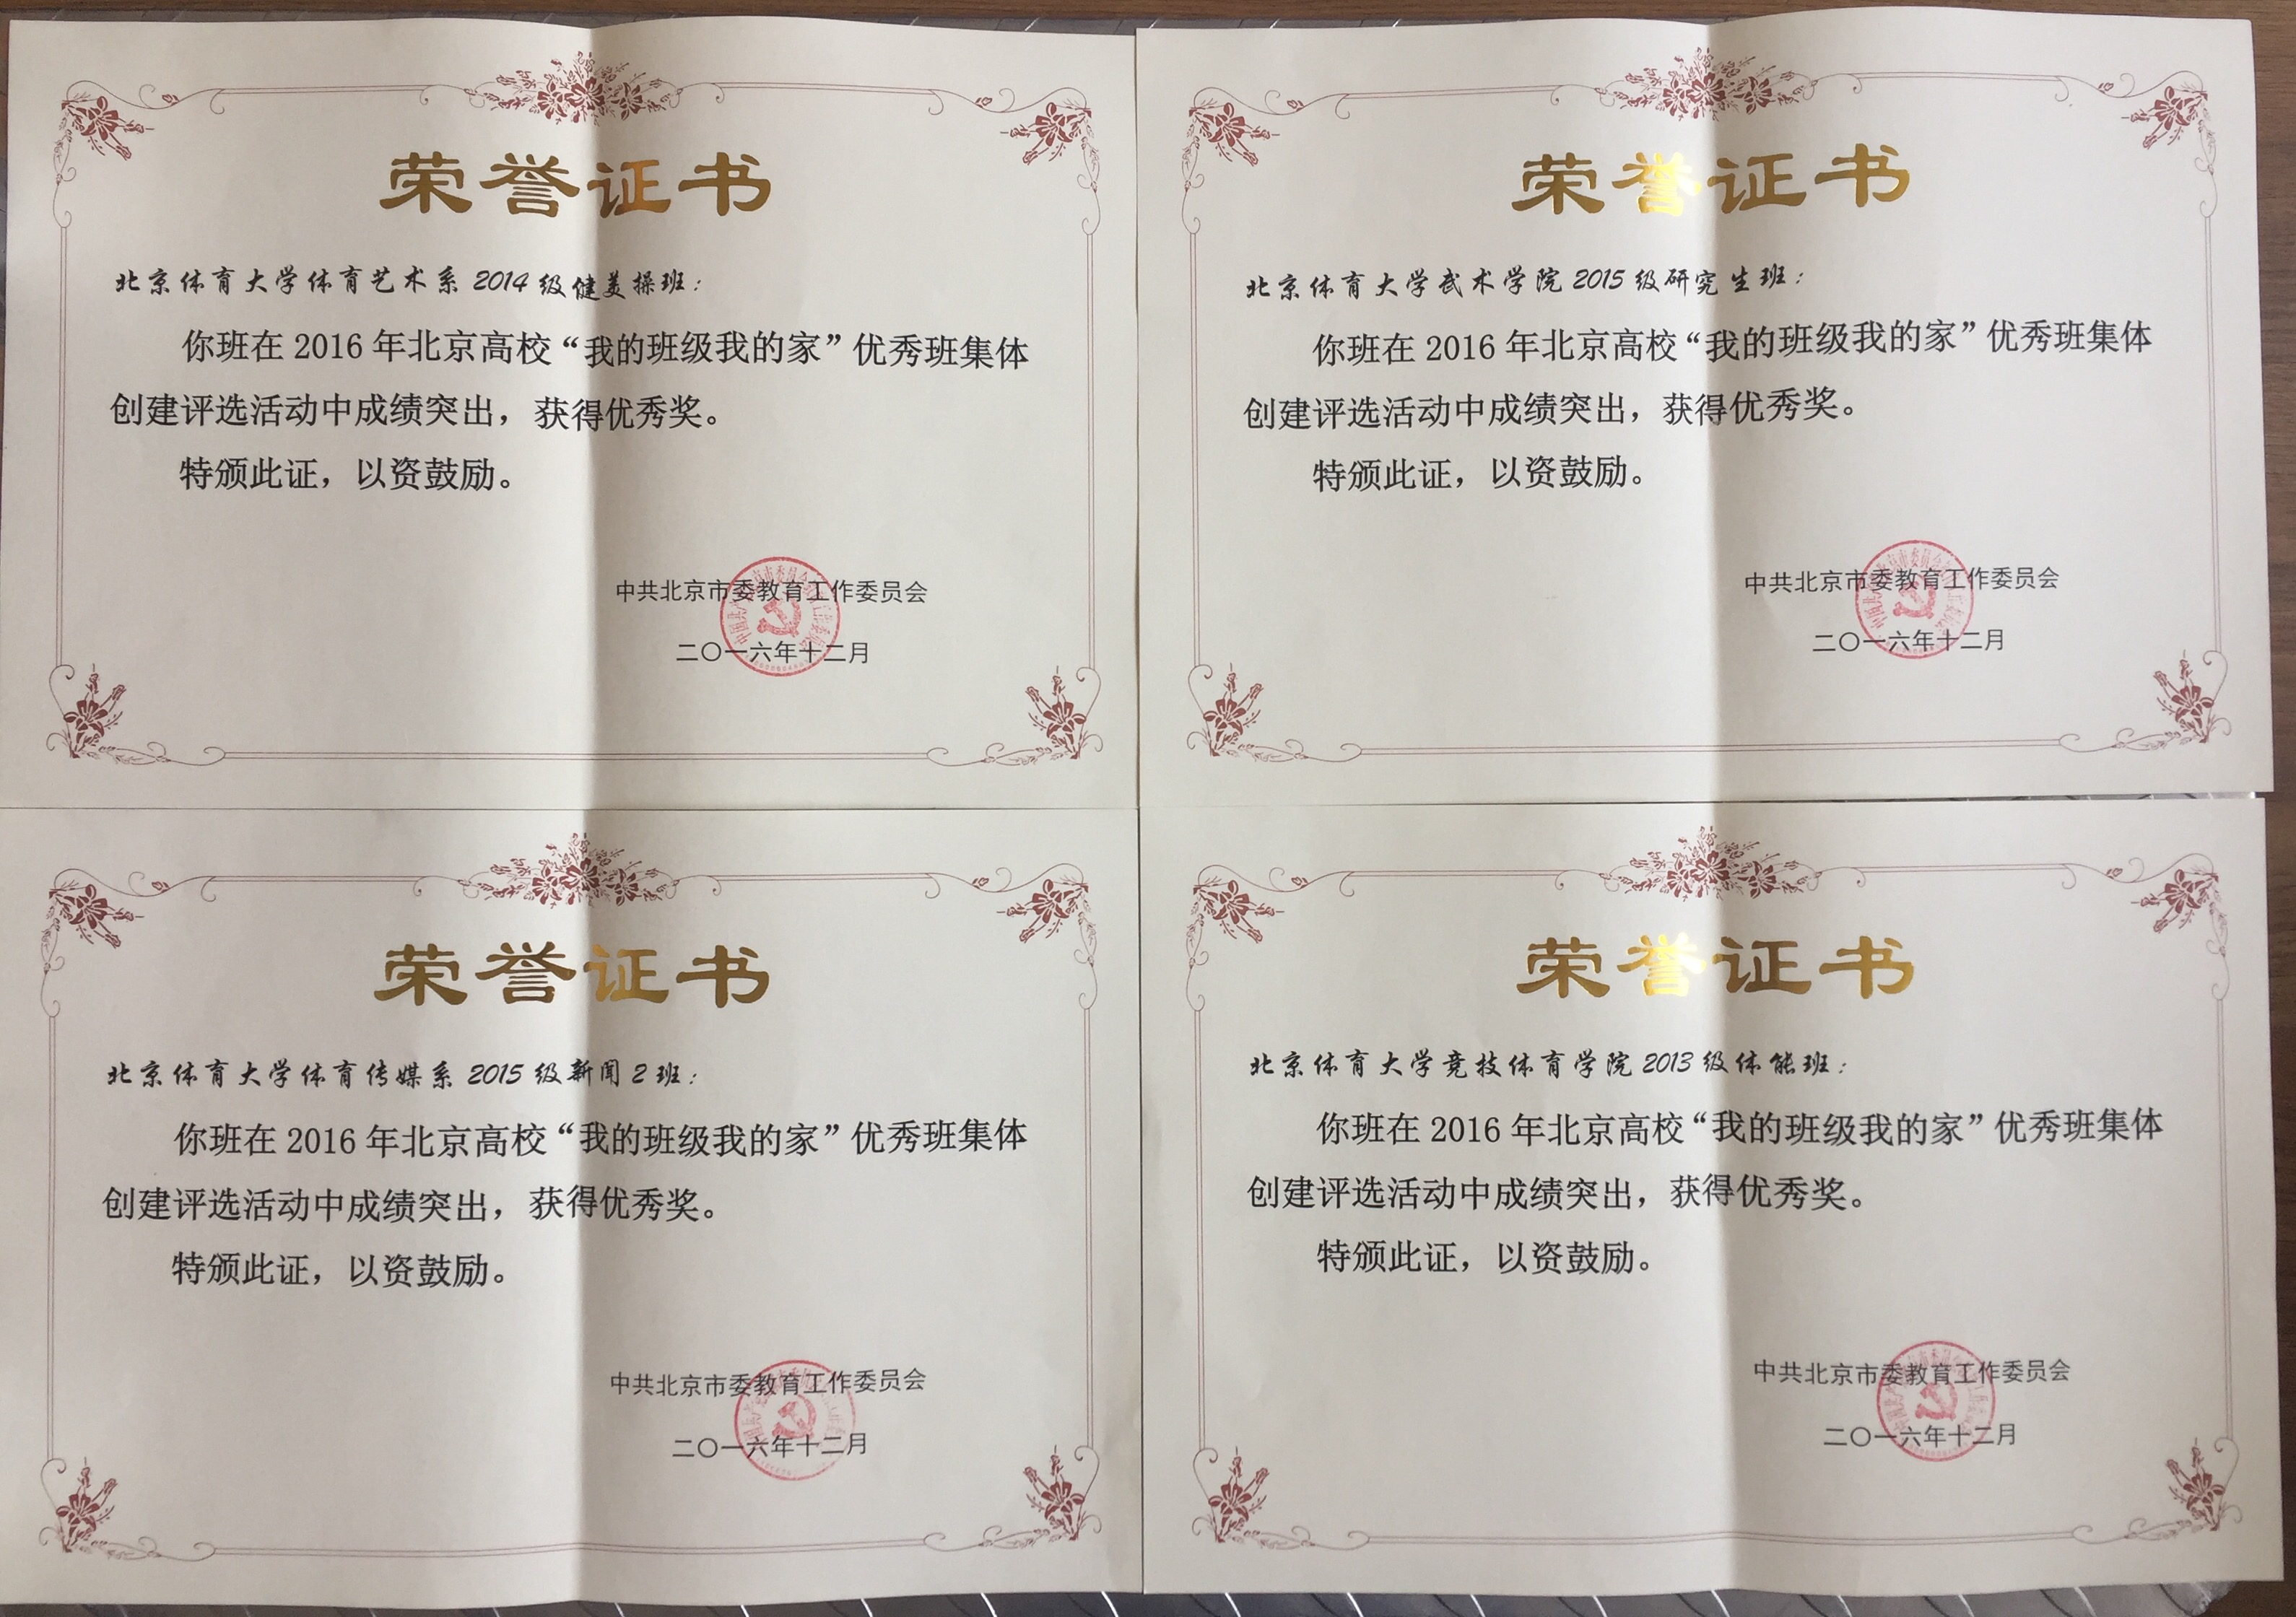 荣誉证书
北京体育大学体育艺术系2014级健美操班：
你班在2016年北京高校“我的班级我的家”优秀班集体
创建评选活动中成绩突出，获得优秀奖。
特颁此证，以资鼓励。
中共北京市委教育工作委员会
二〇一六年十二月
荣誉证书
北京体育大学武术学院2015级研究生班：
你班在2016年北京高校“我的班级我的家”优秀班集体
创建评选活动中成绩突出，获得优秀奖。
特颁此证，以资鼓励。
中共北京市委教育工作委员会
二〇一六年十二月
荣誉证书
北京体育大学体育传媒系2015级新闻2班：
你班在2016年北京高校“我的班级我的家”优秀班集体
创建评选活动中成绩突出，获得优秀奖。
特颁此证，以资鼓励。
中共北京市委教育工作委员会
二〇一六年十二月
荣誉证书
北京体育大学竞技体育学院2013级体能班：
你班在2016年北京高校“我的班级我的家”优秀班集体
创建评选活动中成绩突出，获得优秀奖。
特颁此证，以资鼓励。
中共北京市委教育工作委员会
二〇一六年十二月